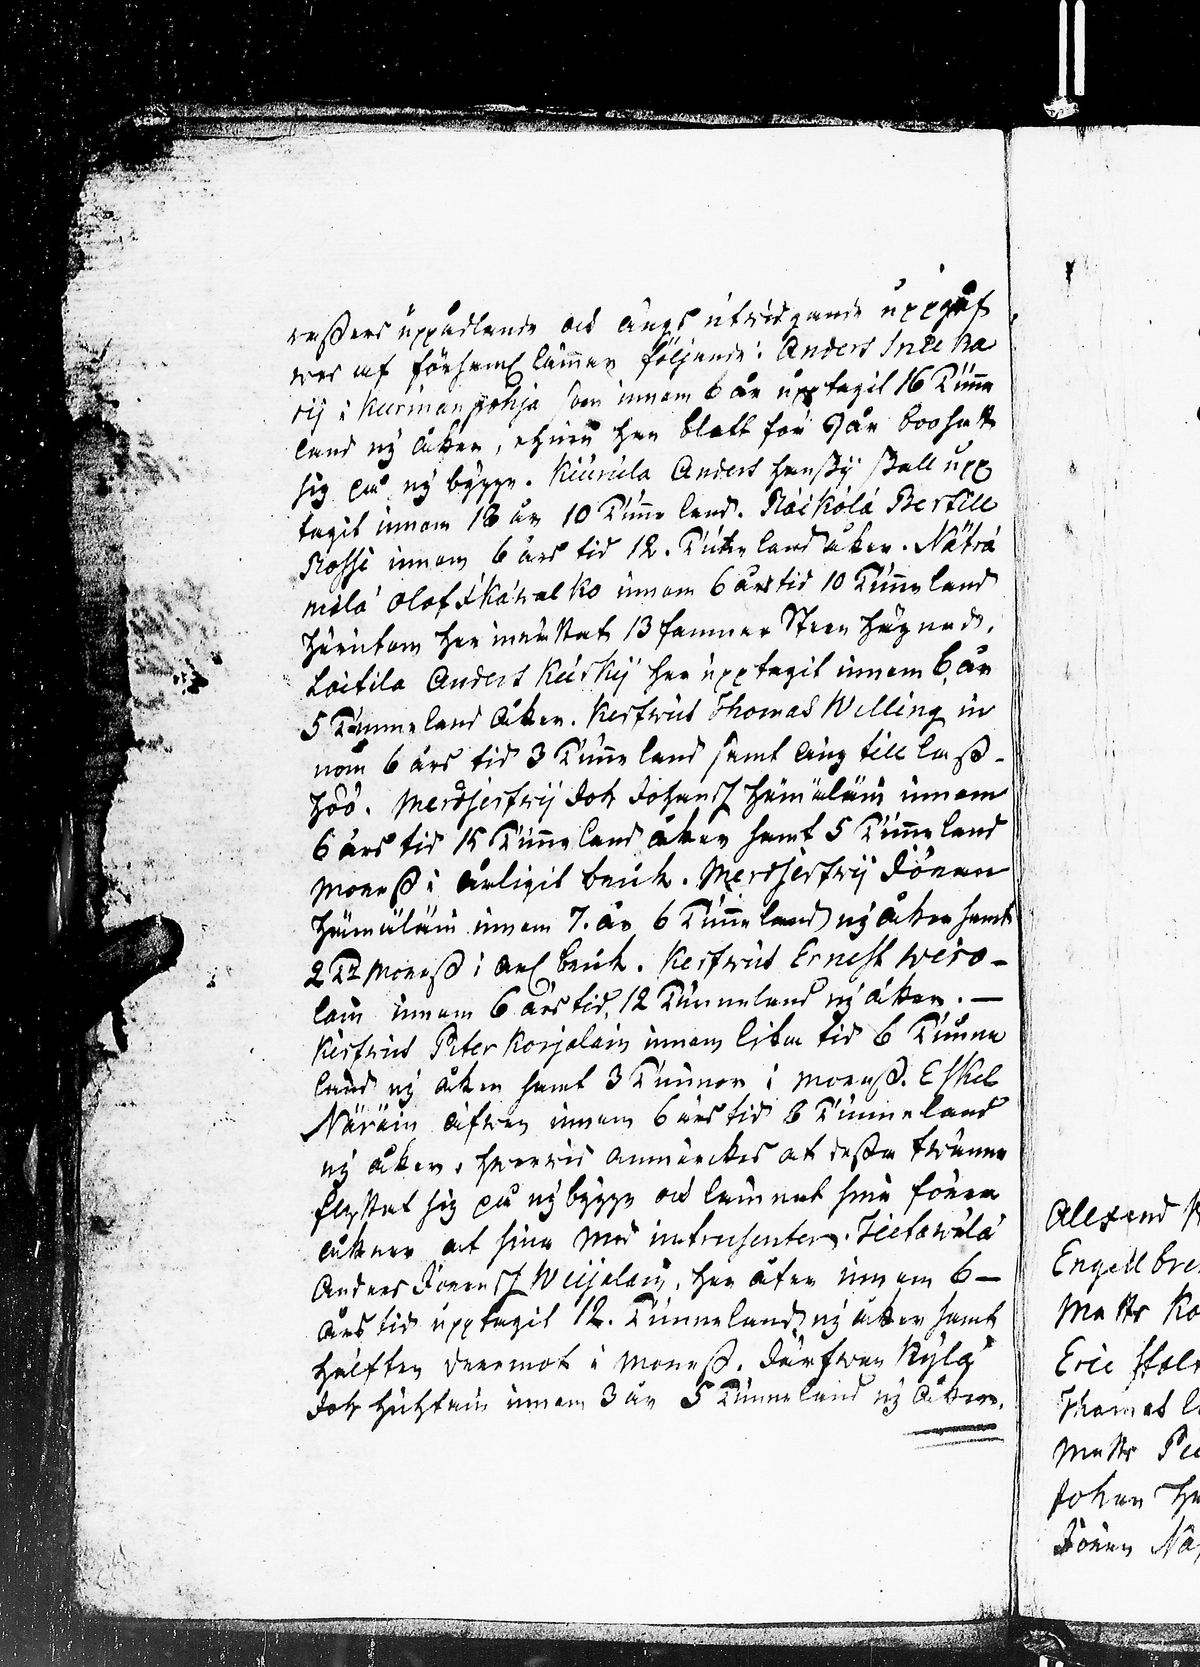 raßers uppodlande och ängs utwidgande uppgåf
wos af församl lämmar föliande: Anders Inckeha
rij i Kurmanpohja som innom 6 år upptagit 16 Tunne
land ny åker, ehuru han blott för 9 år boosatt
sig på ny bygge. Kuurula Anders Hanßij skall upp
tagit innom 18 år 10 Tunne land. Räikölä Bertill
Rossi innom 6 års tid 12. Tunneland åker. Näträ
mälä Olof Ikäwalko innom 6 års tid 10 Tunneland
härutom han inrättat 13 famnar Steen hägnad.
Laitila Anders Kurkij har upptagit innom 6 år
5 Tunneland åker. Kesfwus Thomas Willing in
nom 6 års tid 3 Tunneland samt äng till laß-
höö. Merdjerfwij Joh Johansß Hämäläin innom
6 års tid 15 Tunneland åker samt 5 Tunneland
Moraß i årligit bruk. Merdjerfwij Jöran
Hämäläin innom 7. år 6 Tunneland ny åker samt
2 Td Moraß i årl bruk. Kesfwus Ernest Wiro-
lain innom 6 års tid, 12 Tunneland ny åker. —
Kesfwus Peter Korjalain innom lika tid 6 Tunne
land ny åker samt 3 Tunnor i moraß. Eskel
Näräin äfwen innom 6 års tid 8 Tunneland
ny åker, hwarwid anmärckes at deßa twänne
flyttat sig på ny bygge och lämnat sina förra
åkrar åt sina Med intressenter. Tietäwälä
Anders Jöransß Weijalain, har äfen innom 6 –
års tid upptagit 12. Tunneland ny åker samt
hälften deremot i Moraß. Järfwen Kylä
Joh Huhtain innom 3 år 5 Tunneland ny åker.
Alexand
Engellbre
Matts Ko
Eric Stol
Thomas
Matts Pu
Johan Hu
Jöran Nä